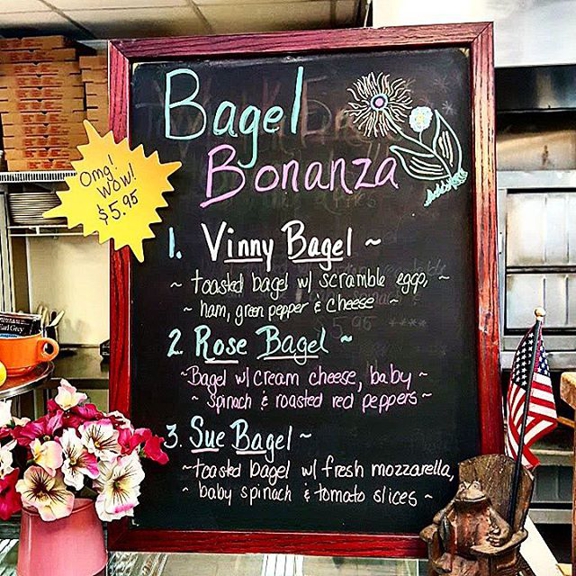 Bagel
Bonanza
Omg!
Wow!
$5.95
1. Vinny Bagel ~
~ toasted bagel w/ scramble egg, ~
~ ham, green pepper & cheese ~
2. Rose Bagel ~
~Bagel w/ cream cheese, baby ~
~ spinach & roasted red peppers ~
3. Sue Bagel ~
~toasted bagel w/ fresh mozzarella,
~ baby spinach & tomato slices ~
Earl Grey